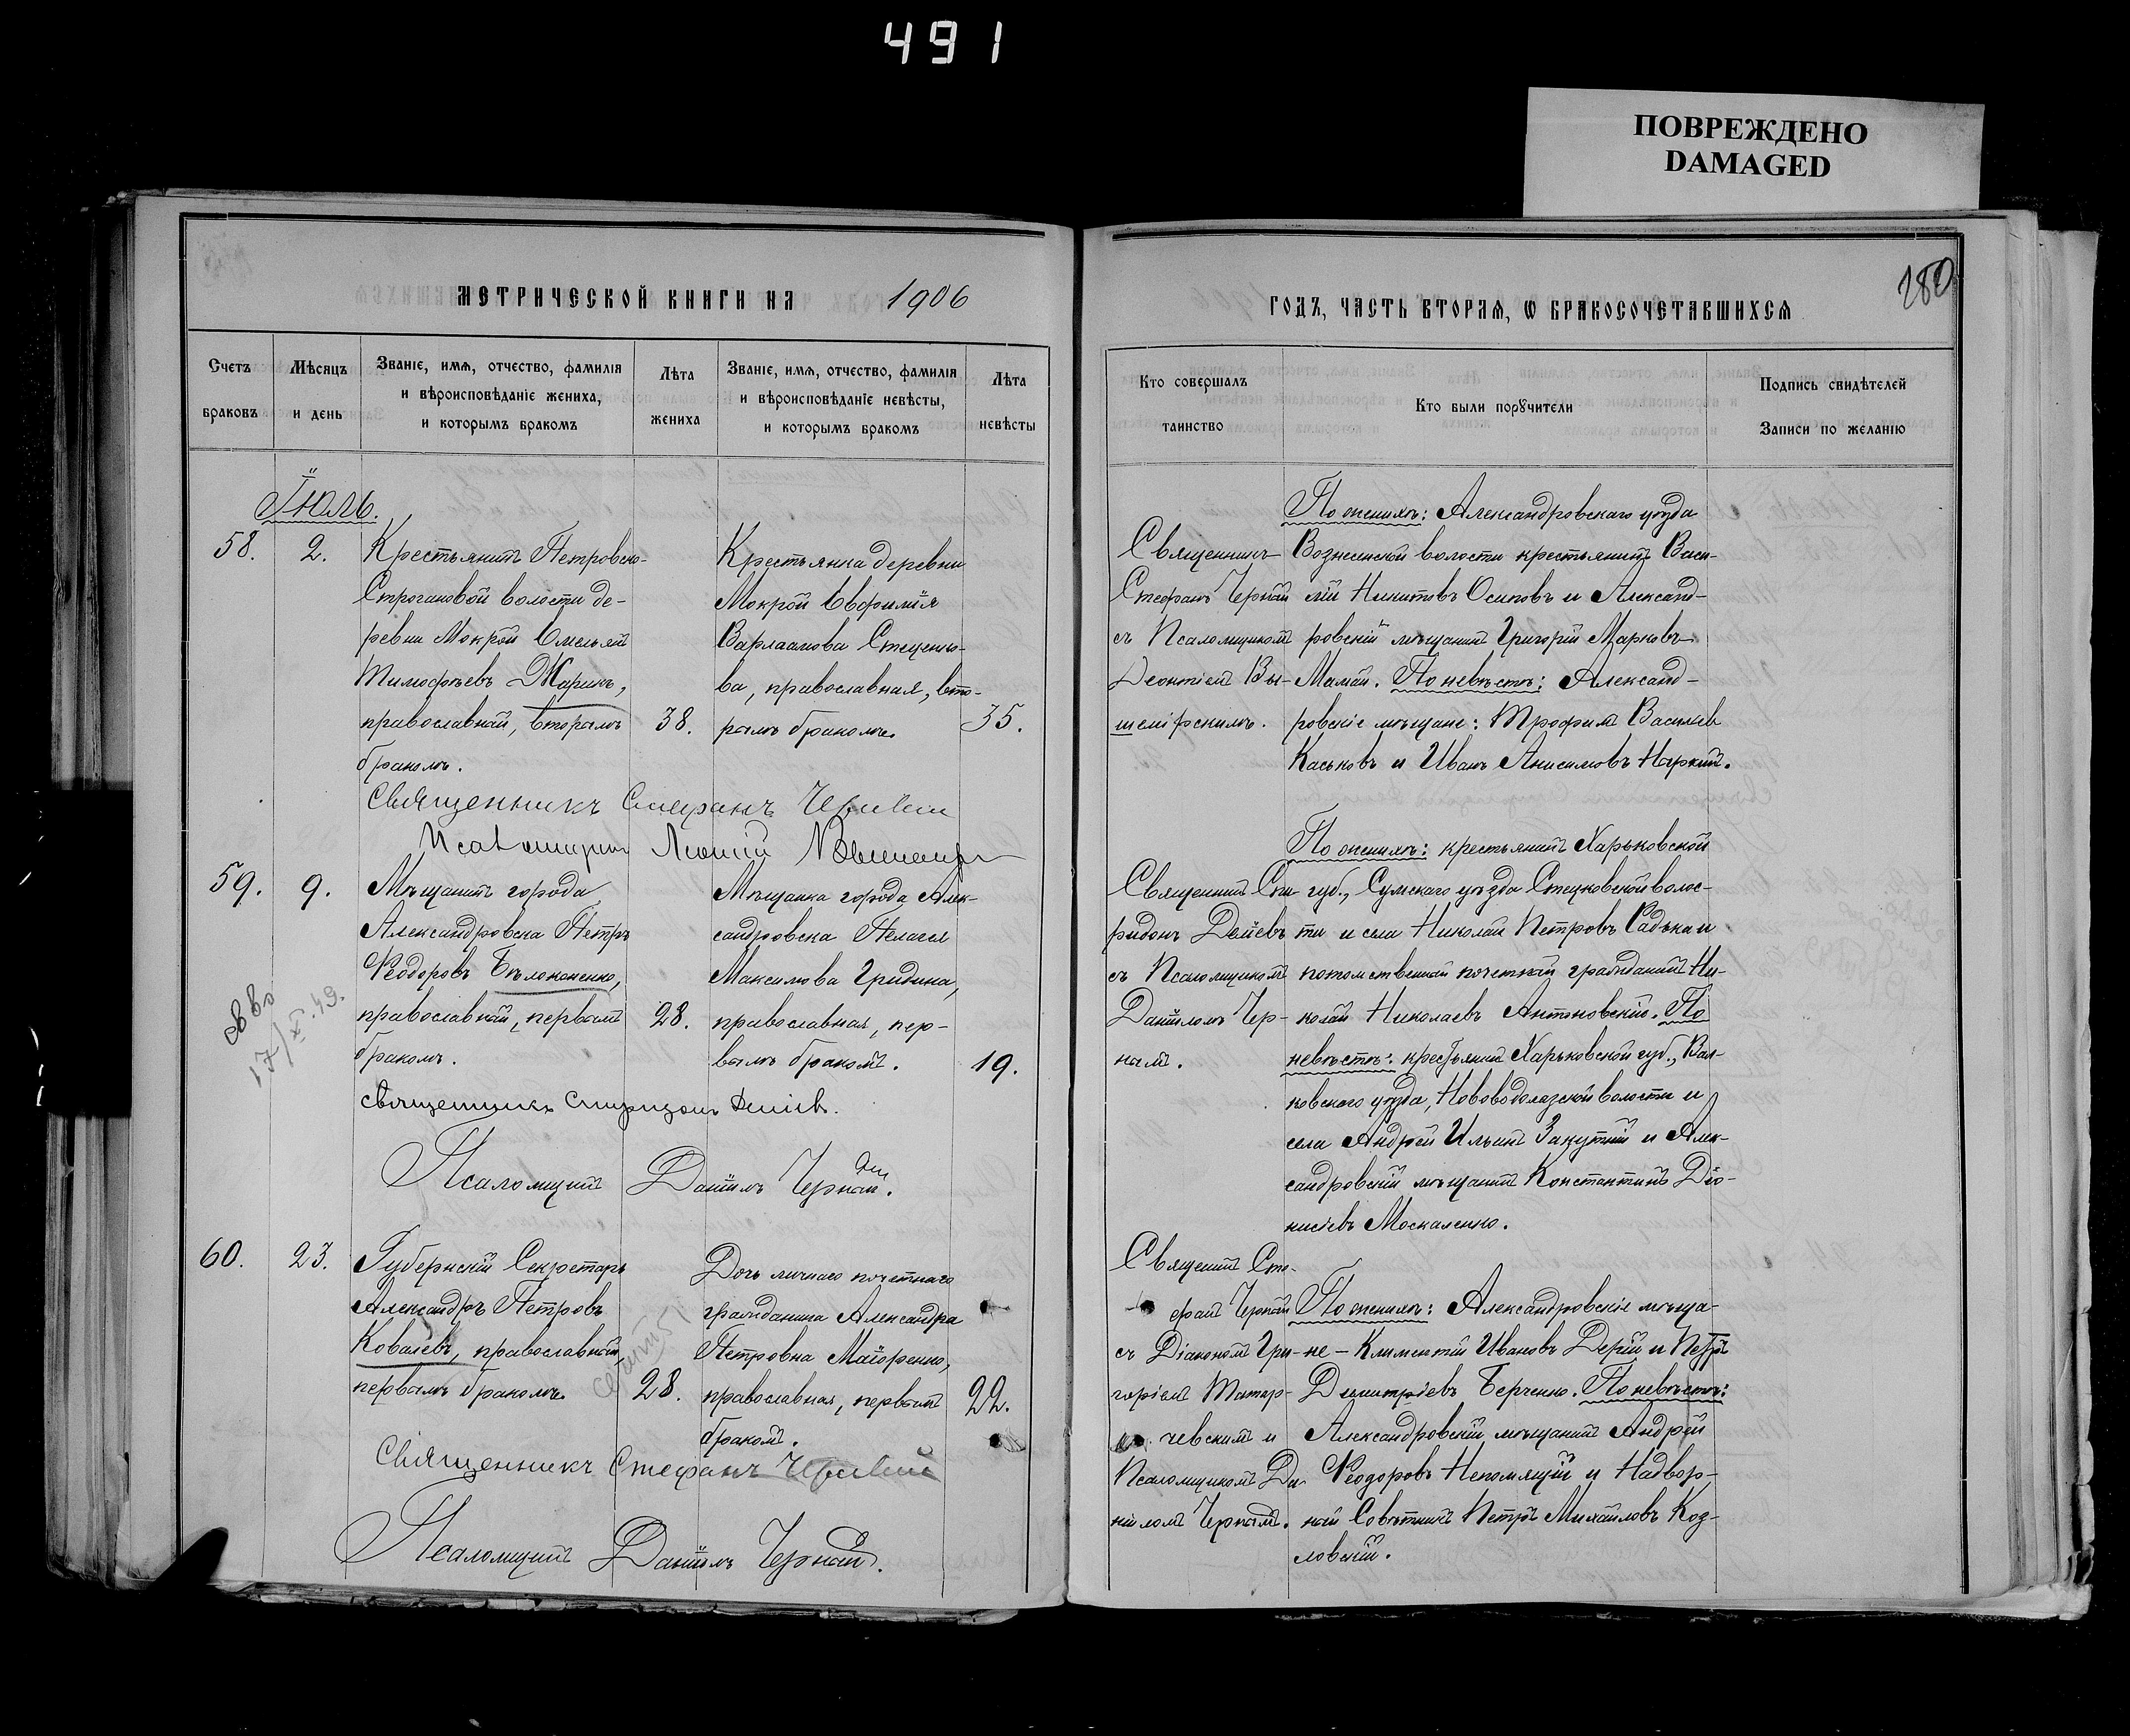 491
ПОВРЕЖДЕНО
DAMAGED
280
МЕТРИЧЕСКОЙ КНИГИ НА 1906
Счетъ браковъ
Мѣсяцъ и день
Званіе, имя, отчество, фамилія
и вѣроисповѣданіе жениха,
и которымъ бракомъ
Лѣта жениха
Званіе, имя, отчество, фамилія
и вѣроисповѣданіе невѣсты,
и которымъ бракомъ
Лѣта невѣсты
Іюль.
58.
2.
Крестьянинъ Петровско-
Строгановой волости де-
ревни Мокрой Омельянъ
Тимофѣевъ Жарикъ,
православный, вторымъ
бракомъ.
38.
Крестьянка деревни
Мокрой Евфимія
Варлаамова Стеценко-
ва, православная, вто-
рымъ бракомъ.
35.
Священникъ Стефанъ Черный
Псаломщикъ Леонтій
59.
9.
Мѣщанинъ города
Александровска Петръ
Ѳеодоровъ Бѣлоконенко,
православный, первымъ
бракомъ.
28.
Мѣщанка города Алек-
сандровска Пелагея
Максимова Гридина,
православная, пер-
вымъ бракомъ.
19.
17/X.49.
Священникъ Спиридонъ Дейсъ.
Псаломщикъ Даніилъ Черный.
60.
23.
Губернскій Секретарь
Александръ Петровъ
Ковалевъ, православный,
первымъ бракомъ.
28.
Дочь личнаго почетнаго
гражданина Александра
Петровна Майоренко,
православная, первымъ
бракомъ.
22.
Священникъ Стефанъ Черный
Псаломщикъ Даніилъ Черный.
ГОДЪ, ЧАСТЬ ВТОРАЯ, Ѡ БРАКОСОЧЕТАВШИХСЯ
Кто совершалъ таинство
Кто были порꙋчители
Подпись свидѣтелей
Записи по желанію
Священникъ
Стефанъ Черный
съ Псаломщикомъ
Леонтіемъ Вы-
шемірскимъ.
По женихѣ: Александровскаго уѣзда
Вознесенской волости крестьянинъ Васи-
лій Никитовъ Осиповъ и Александ-
ровскій мѣщанинъ Григорій Марковъ
Мамай. По невѣстѣ: Александ-
ровскіе мѣщане: Трофимъ Васильевъ
Каськовъ и Иванъ Анисимовъ
Священникъ Спи-
ридонъ Дейсъ
съ Псаломщикомъ
Даніиломъ Чер-
нымъ.
По женихѣ: крестьянинъ Харьковской
губ., Сумскаго уѣзда Стецковской волос-
ти и села Николай Петровъ Садька и
потомственный почетный гражданинъ Ни-
колай Николаевъ Антоновскій. По
невѣстѣ: крестьянинъ Харьковской губ., Вал-
ковскаго уѣзда, Нововодолазской волости и
села Андрей Ильинъ Закутній и Алек-
сандровскій мѣщанинъ Константинъ Діо-
нисіевъ Москаленко.
Священникъ Сте-
фанъ Черный
съ Діакономъ Гри-
горіемъ Матар-
чевскимъ и
Псаломщикомъ Да-
ніиломъ Чернымъ.
По женихѣ: Александровскіе мѣща-
не – Климентій Ивановъ Дерій и Петръ
Димитріевъ Берченко. По невѣстѣ:
Александровскій мѣщанинъ Андрей
Ѳеодоровъ Непомящій и Надвор-
ный Совѣтникъ Петръ Михайловъ Коз-
ловскій.